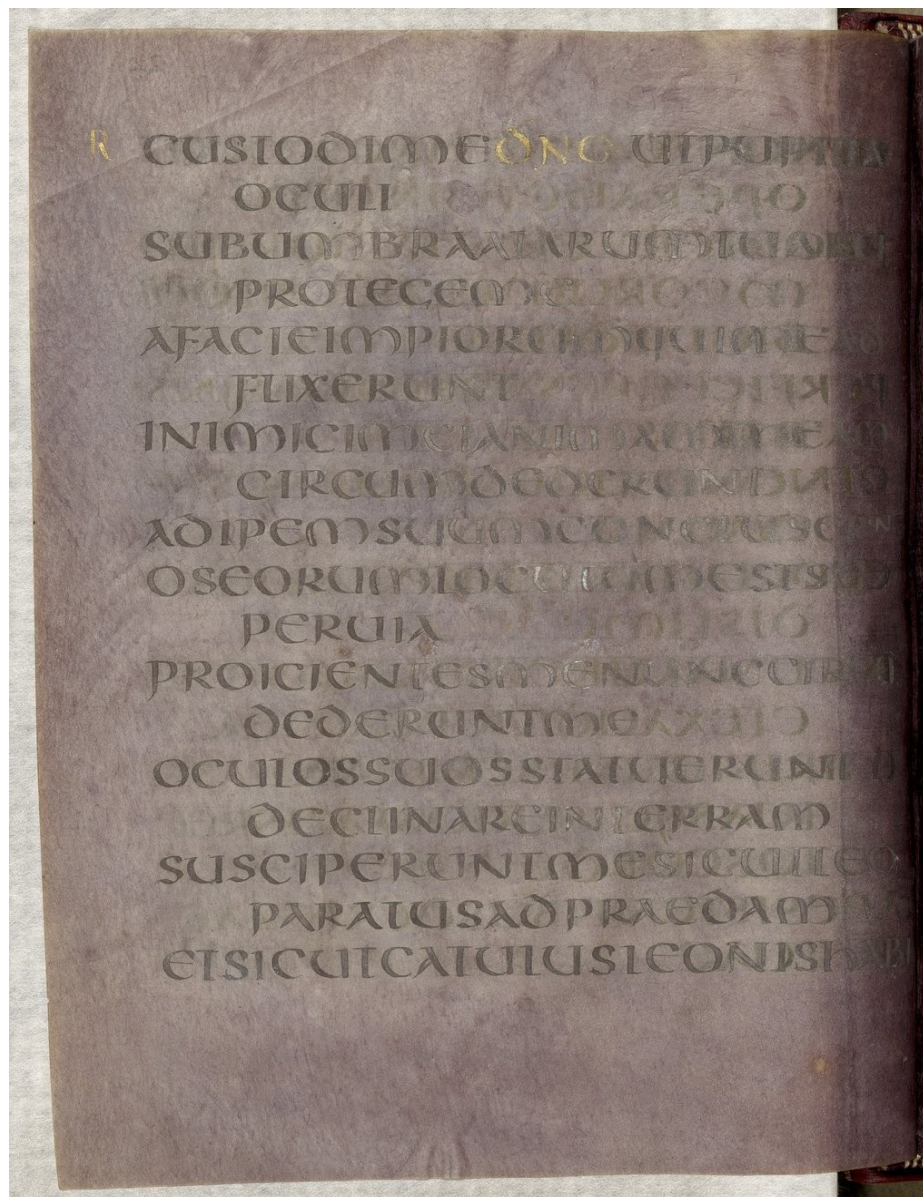 R CUSTODIMEDNE UTPUPILLA
OCULI
SUBUMBRAALARUMTUARU
PROTEGEME
AFACIEIMPIORUMQUIMEAD
FLIXERUNT
INIMICIMEIANIMAMMEAM
CIRCUMDEDERUNT
ADIPEMSUUMCONCLUSERUN
OSEORUMLOCUTUMESTSU
PERUIA
PROICIENTESMENUNCCIRCU
DEDERUNTME
OCULOSSUOSSTATUERUNT
DECLINAREINTERRAM
SUSCIPERUNTMESICUTLEO
PARATUSADPRAEDAM
ETSICUTCATULUSLEONISHABI